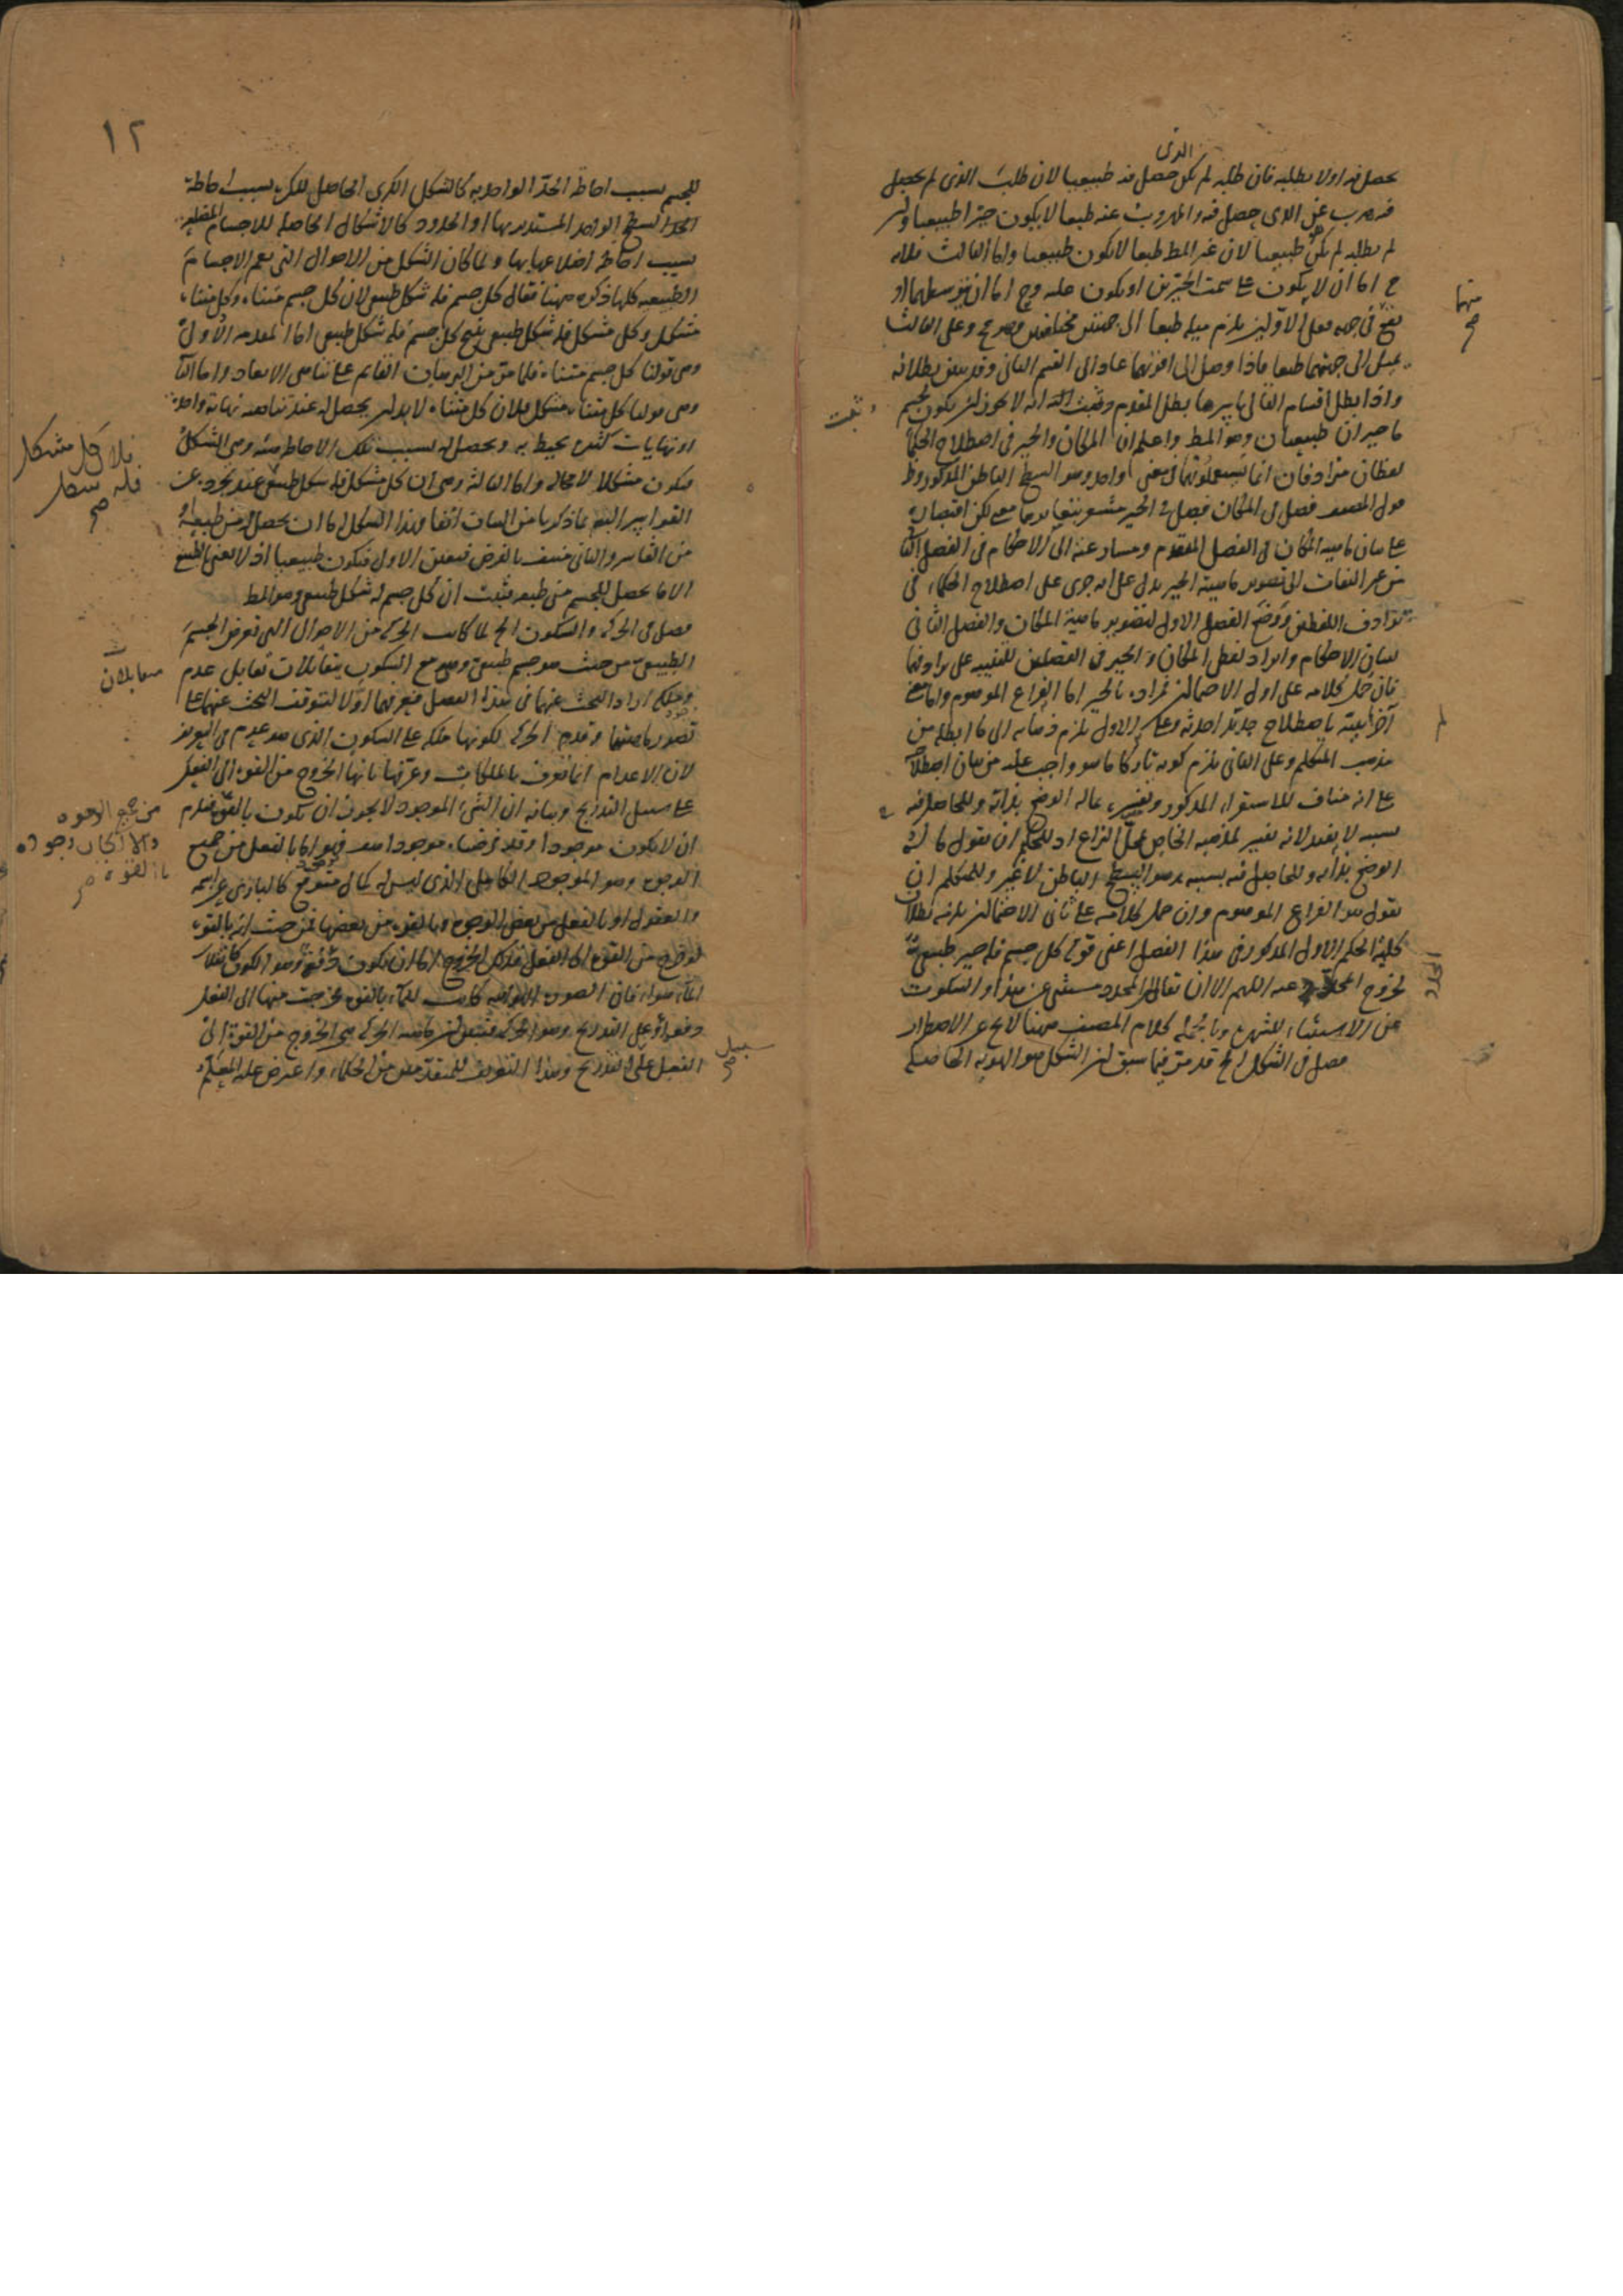 الذى
يحصل فيه اولا يطلبه فان طلبه لم يكن حصل فيه طبيعيا لان طلب الذى لم يحصل
فيه هرب عن الذى حصل فيه والمهروب عنه طبعا لا يكون حيزا طبيعيا وان
لم يطلبه لم يكن طبيعيا لان غير المط طبعا لا يكون طبيعيا واما الثالث فلانه
ح اما ان لا يكون على سمت الحيزين او يكون عليه وح اما ان يتوسطهما او
يقع فى جهة فعلى الاولين يلزم ميله طبعا الى جهتين مختلفتين وهو مح وعلى الثالث
يميل الى جهتهما طبعا فاذا وصل الى اقربهما عاد الى القسم الثانى وقد تبين بطلانه
واذا بطل اقسام التالى باسرها بطل المقدم وثبت انه لا يجوز ان يكون لجسم
ما حيزان طبيعيان وهو المط واعلم ان المكان والحيز فى اصطلاح الحكماء
لفظان مترادفان انما يستعملونهما فى معنى واحد وهو السطح الباطن المذكور
قول المصنف فصل فى المكان فصل فى الحيز مشعر
على بيان ماهية المكان فى الفصل المتقدم الى الاحكام فى الفصل الثانى
من غير التفات الى تصوير ماهية الحيز يدل على انه جرى على اصطلاح الحكماء فى
ترادف اللفظين ووضع الفصل الاول لتصوير ماهية المكان والفصل الثانى
لبيان الاحكام وايراد لفظ المكان والحيز فى الفصلين للتنبيه على ترادفهما
فان حمل كلامه على اول الاحتمالين فمراده بالحيز اما الفراغ الموهوم واما معنى
آخر اثبته باصطلاح جديد احدثه وعلى الاول يلزم ذهابه الى ما ابطله من
مذهب المتكلم وعلى الثانى يلزم كونه تاركا ما هو واجب عليه من بيان اصطلاحه
على انه مناف للاستقراء المذكور وتفسيره بما له الوضع بذاته وللحاصل فيه
بسببه لا يفيد لانه تفسير لمذهبه الخاص محل النزاع اذ للحكيم ان يقول ما له
الوضع بذاته وللحاصل فيه بسببه هو السطح الباطن لا غير وللمتكلم ان
يقول هو الفراغ الموهوم وان حمل كلامه على ثانى الاحتمالين يلزمه بطلان
كلية الحكم الاول المذكور فى هذا الفصل اعنى قوله كل جسم فله حيز طبيعى
لخروج المحدد عنه اللهم الا ان يقال المحدد مستثنى عن هذا والسكوت
عن الاستثناء للشهرة وبالجملة كلام المصنف ههنا لا يخ عن الاضطراب
فصل فى الشكل الخ قد مر فيما سبق ان الشكل هو الهيئة الحاصلة
منهما
صح
وثبت
المحدد
١٢
للجسم بسبب احاطة الحد الواحد به كالشكل الكرى الحاصل للكرة بسبب احاطة
الحد السطح الواحد المستدير بها او الحدود كالاشكال الحاصلة للاجسام المضلعة
بسبب احاطة اضلاعها بها ولما كان الشكل من الاحوال التى تعم الاجسام
الطبيعية كلها ذكره ههنا فقال كل جسم فله شكل طبيعى لان كل جسم متناه وكل متناه
متشكل وكل متشكل فله شكل طبيعى ينتج كل جسم فله شكل طبيعى اما المقدمة الاولى
وهى قولنا كل جسم متناه فلما مر من البرهان القائم على تناهى الابعاد واما الثانية
وهى قولنا كل متناه متشكل فلان كل متناه لا بد ان يحصل له عند تناهيه نهاية واحدة
او نهايات كثيرة يحيط به ويحصل له بسبب تلك الاحاطة هيئة وهى الشكل
فيكون متشكلا لا محالة واما الثالثة وهى ان كل متشكل فله شكل طبيعى عند تجرده عن
القواسر
من القاسر والثانى منتف بالفرض فتعين الاول فيكون طبيعيا اذ لا يعنى بالطبيعى
الا ما يحصل للجسم من طبعه فثبت ان كل جسم له شكل طبيعى وهو المط
فصل فى الحركة والسكون الخ لما كانت الحركة من الاحوال التى تعرض الجسم
الطبيعى من حيث هو جسم طبيعى وهى مع السكون يتقابلان تقابل عدم
وملكة اراد البحث عنهما فى هذا الفصل فعرفهما اولا لتوقف البحث عنهما على
تصور ماهيتهما وقدم الحركة لكونها ملكة على السكون الذى هو عدم فى التعريف
لان الاعدام انما تعرف بالملكات وعرفها بانها الخروج من القوة الى الفعل
على سبيل التدريج وبيانه ان الشئ الموجود لا يجوز ان يكون بالقوة فيلزم
ان لا يكون موجودا وقد فرضناه موجودا هف فهو اما بالفعل من جميع
الوجوه وهو الموجود الكامل الذى ليس له كمال متوقع كالبارى عز اسمه
والعقول او بالفعل من بعض الوجوه وبالقوة من بعضها فمن حيث انه بالقوة
لو خرج من القوة الى الفعل فذلك الخروج اما ان يكون دفعة وهو الكون كانقلاب
الماء هواء فان الصورة الهوائية كانت للماء بالقوة فخرجت منها الى الفعل
دفعة او على التدريج وهو الحركة فتبين ان ماهية الحركة هى الخروج من القوة الى
الفعل على التدريج وهذا التعريف للمتقدمين من الحكماء واعترض عليه المعلم
فلان كل متشكل
فله شكل
صح
متقابلان
من جميع الوجوه
والا لكان وجوده
بالقوة صح
سبيل
صح